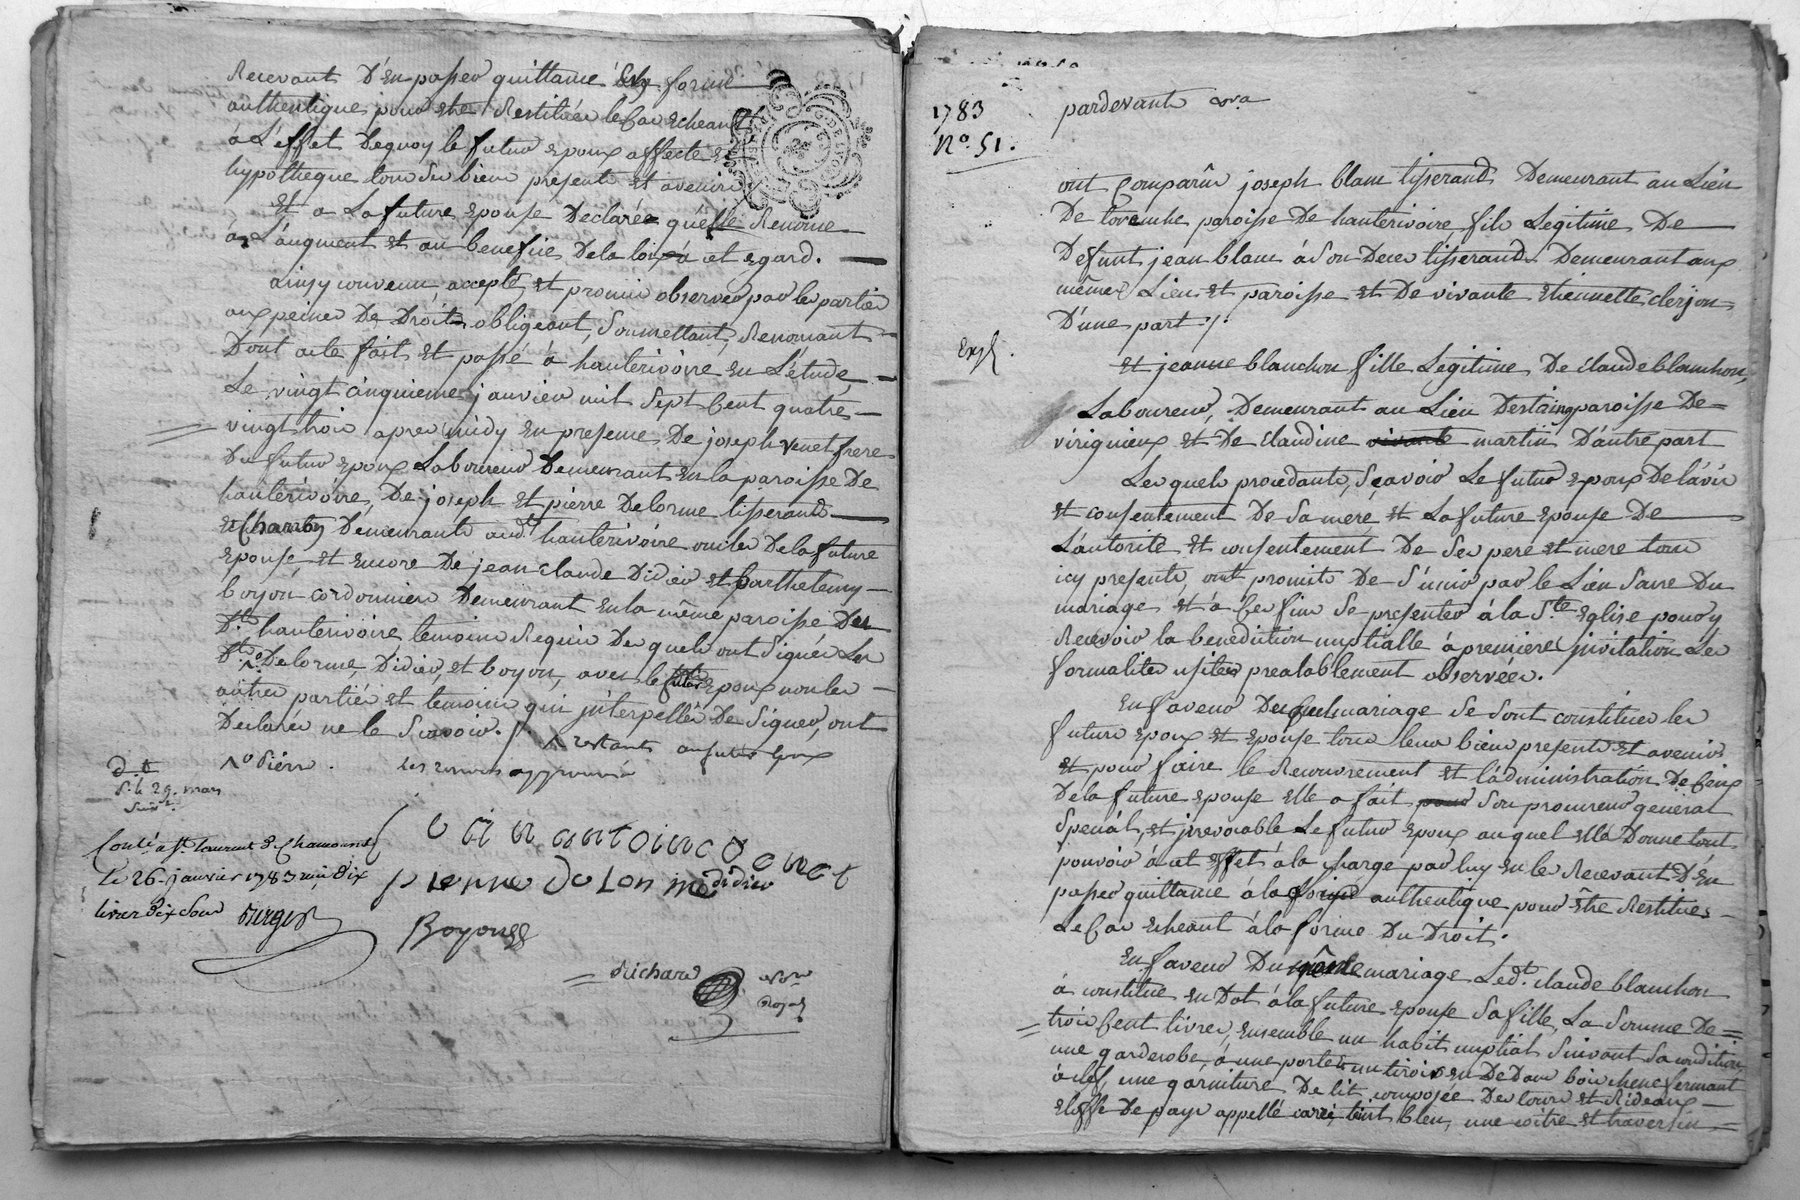 Recevant D'En passer quittance En forme
authentique pour etre Restituée le Cas Echeant
à L'effet Dequoy le futur epoux affecte et
hypotheque tous ses biens presents et avenir
Et a La future Epouse Declarée qu'elle Renonce
à L'augment et au benefice De la loix à cet egard.
ainsy convenu, accepté, et promis observer par les parties
aux peines De Droit, obligeant, Soumettant, Renoncant
Dont acte fait et passé à hauterivoire en L'étude,
Le vingt cinquieme janvier mil Sept Cent quatre
vingt trois apres midy En presence De joseph venet frere
Du futur epoux Laboureur Demeurant en la paroisse De
hauterivoire, De joseph et pierre Delorme tisserands
et Charron Demeurants aud.t hauterivoire oncles De la future
epouse et encore De jean claude Didier et barthelemy
boyon cordonniers Demeurant en la même paroisse Des
D.ts hauterivoire temoins Requis Des quels ont Signés Les
D.ts Delorme, Didier, et boyon, avec le futur Epoux non les
autres parties et temoins qui interpellés De Signer, ont
Declarés ne le Scavoir. /. restants au futur epoux
pierre. les renvois approuvés
D. D.
S. le 29. mars
Suiv.t
Conlé à St. Laurent de Chamousset
Le 26. janvier 1783 reçu Dix
livres Dix Sous
jan antoine venet
pierre De Lorme Didier
Boyon
Richard no.re
Royal
1783
N.o 51.
pardevant
ont Comparûs joseph blanc tisserand Demeurant au Lieu
De paroisse De hauterivoire fils Legitime De
Defunt jean blanc à Son Deces tisserand Demeurant aux
mêmes Lieu et paroisse et De vivante etiennette clerjon
D'une part /.
Exp.
et jeanne blanchon fille Legitime De claude blanchon,
Laboureur, Demeurant au Lieu Destaing paroisse De
virignieux et De claudine vivante martin D'autre part
Les quels procedants, Sçavoir Le futur epoux De l'avis
et consentement De Sa mere, et La future epouse De
L'autorité et consentement De Ses pere et mere tous
icy presents, ont promits De S'unir par le Lien Sacré Du
mariage et à Ces fins Se presenter à la S.te Eglise pour y
Recevoir la benediction nuptialle à premiere invitation Les
formalites usitées prealablement observées.
En faveur Duquel mariage Se Sont constitués les
futurs epoux et epouse tous leurs biens presents et avenirs
et pour faire le Recouvrement et l'administration De Ceux
De la future epouse elle a fait pour Son procureur general
Special, et irrevocable Le futur epoux auquel Elle Donne tout
pouvoir à cet effet à la charge par luy en le Recevant D'En
passer quittance à la forme authentique pour être Restitués
Le Cas echeant à la forme Du Droit.
En faveur Du même mariage Led.t claude blanchon
à constitué en Dot à la future epouse Sa fille, La Somme De
trois Cent livres, ensemble un habit nuptial Suivant Sa condition,
une garderobe à une porte un tiroir en Dedans bois chene fermant
à clef, une garniture De lit composée De tours et Rideaux
etoffe De pays appellé teint bleu, une coitre et traversin,